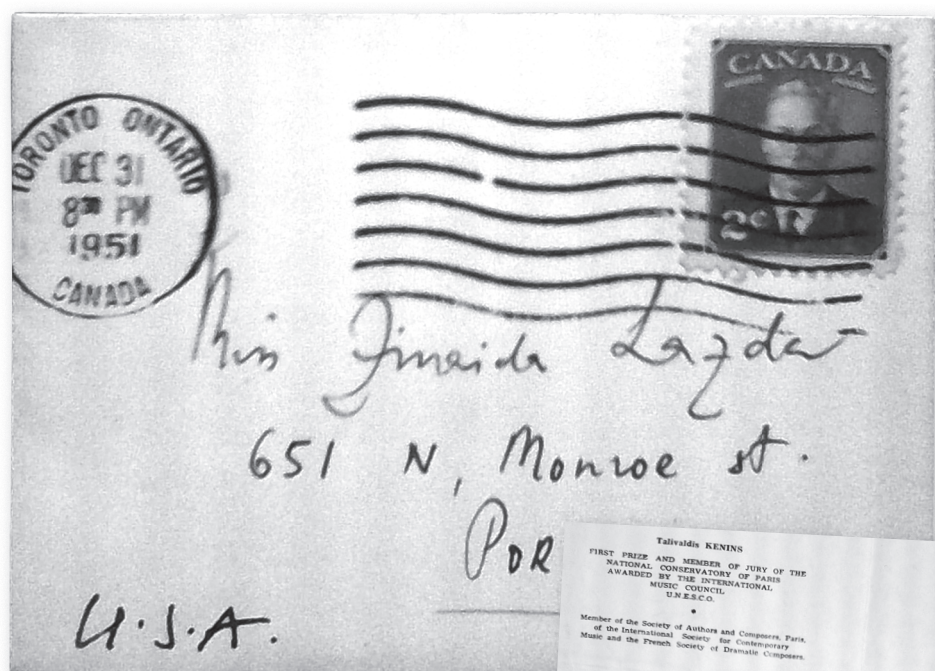 TORONTO ONTARIO
DEC 31
8 PM
1951
CANADA
CANADA
2¢
Miss Zinaida Lazda
651 N, Monroe st.
POR
U.S.A.
Talivaldis KENINS
FIRST PRIZE AND MEMBER OF JURY OF THE
NATIONAL CONSERVATORY OF PARIS
AWARDED BY THE INTERNATIONAL
MUSIC COUNCIL
U.N.E.S.C.O.
Member of the Society of Authors and Composers, Paris,
of the International Society for Contemporary
Music and the French Society of Dramatic Composers.